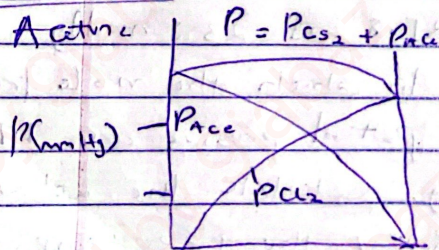 Acetone P = PCS2 + PAce
P(mmHg)
PAce
PCS2